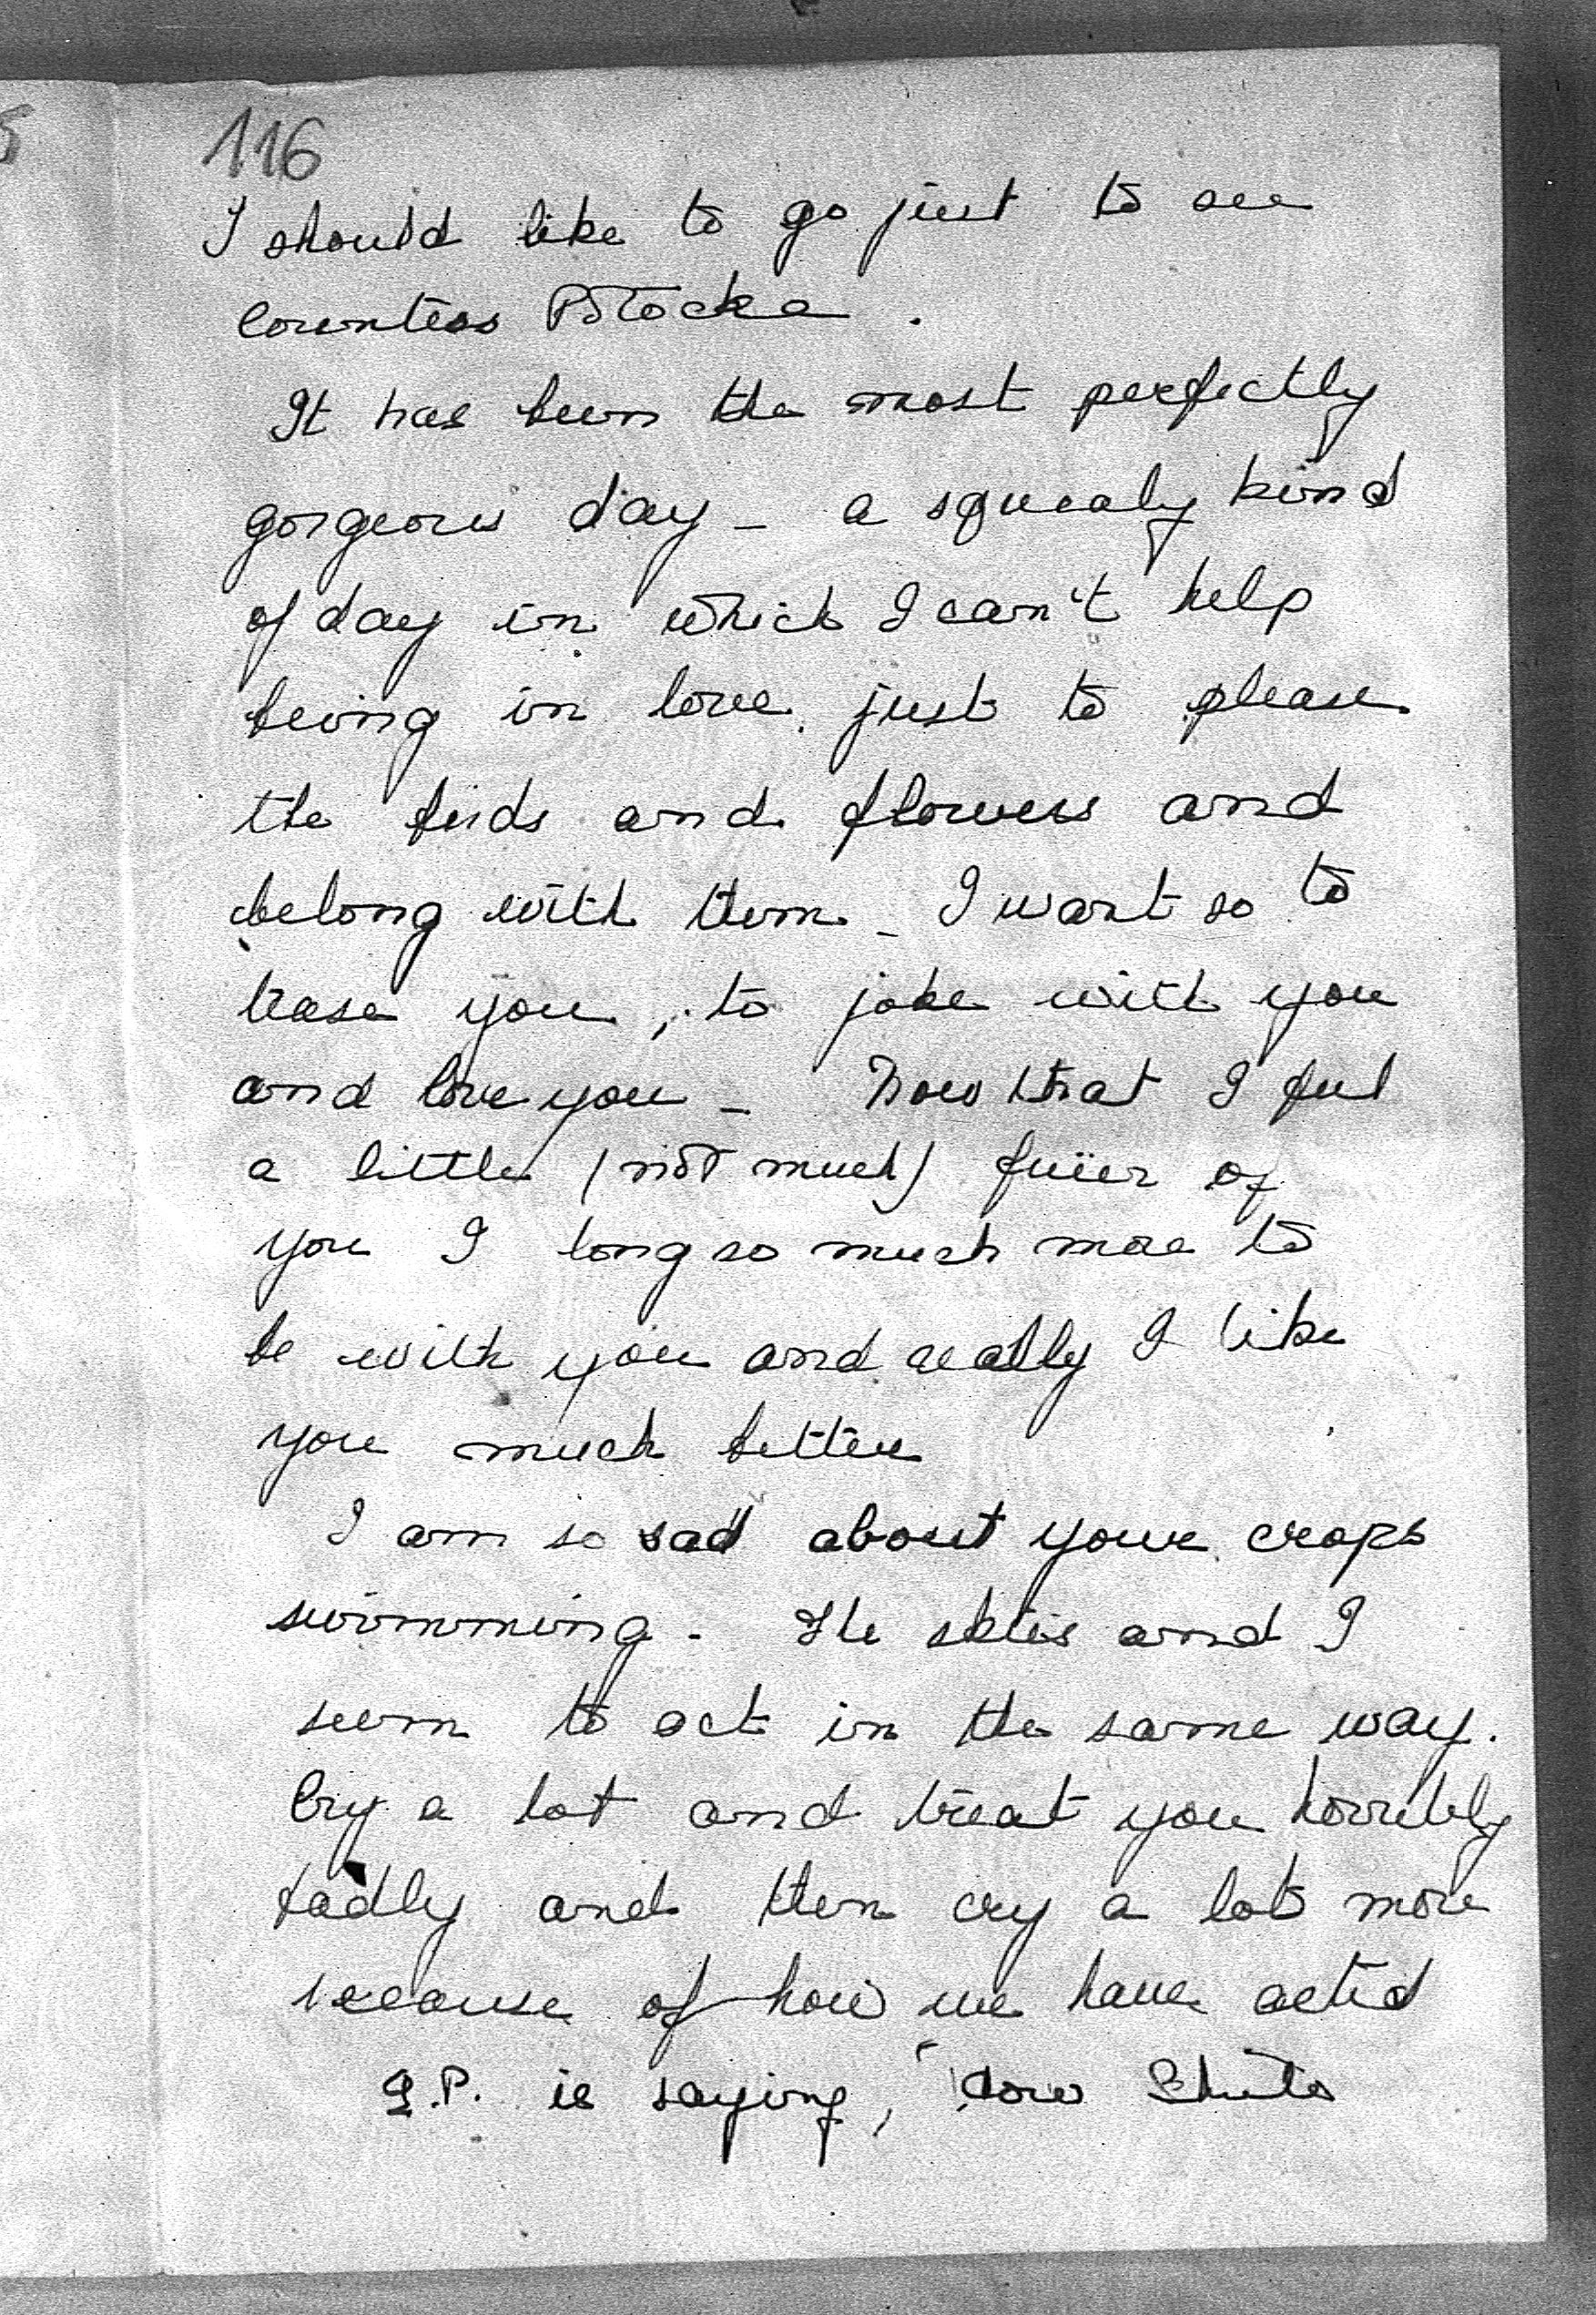 116
I should like to go just to see
Countess Potocka.
It has been the most perfectly
gorgeous day - a squealy kind
of day in which I can't help
being in love just to please
the birds and flowers and
belong with them - I want so to
tease you, to joke with you
and love you - Now that I feel
a little (not much) freer of
you I long so much more to
be with you and really I like
you much better
I am so sad about your crops
swimming - The skies and I
seem to act in the same way.
Cry a lot and treat you horribly
badly and then cry a lot more
because of how we have acted
J.P. is saying,